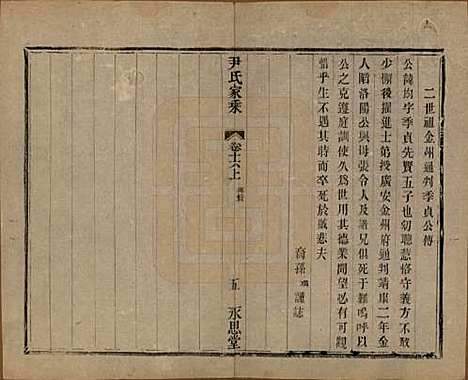 二世祖金州通判季貞公傳
公諱均字季貞先賢五子也幼聰慧恪守義方不
少懈後擢進士第授廣安金州府通判靖康二年金
人陷洛陽公與母張令人及諸兄俱死于難嗚呼以
公之克遵庭訓使久為世用其德業聞望必有可觀
惜乎生不遇其時而卒死於賊悲夫
裔孫 謹誌
尹氏家乘
卷十六上
五
永思堂